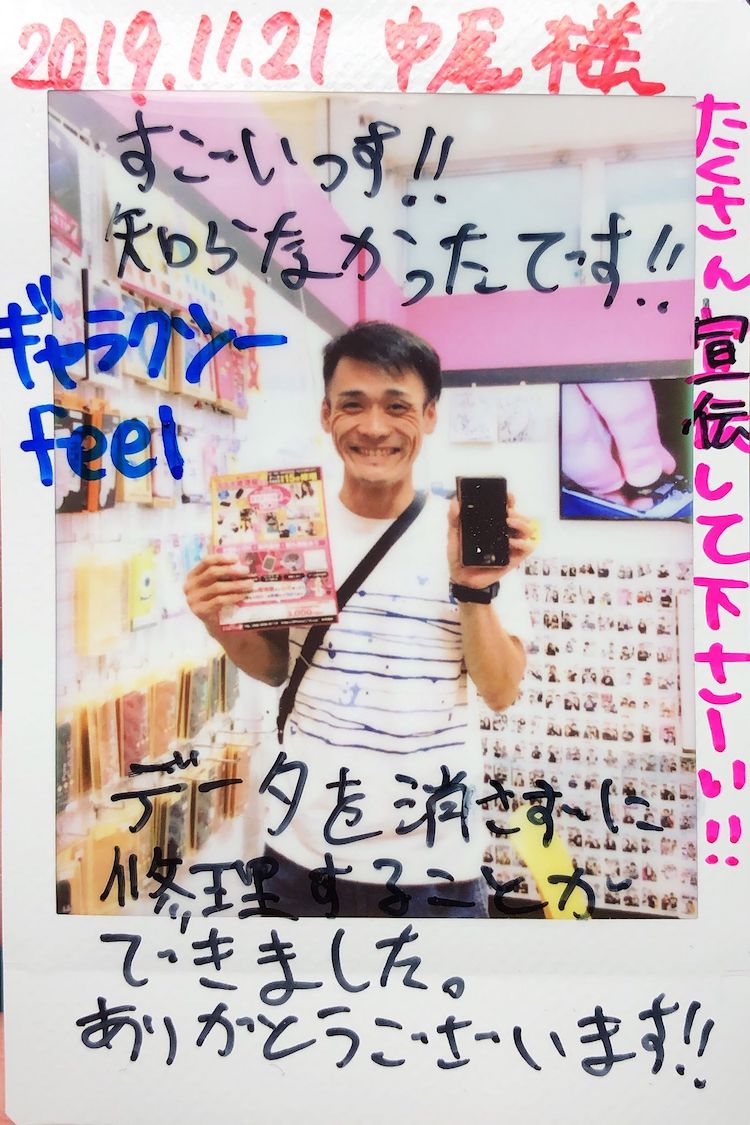 2019.11.21 中尾様
すご〜いっす!!
知らなかったです!!
ギャラクシー
feel
たくさん宣伝して下さーい!!
データを消さずに
修理することが
できました。
ありがとうございます!!